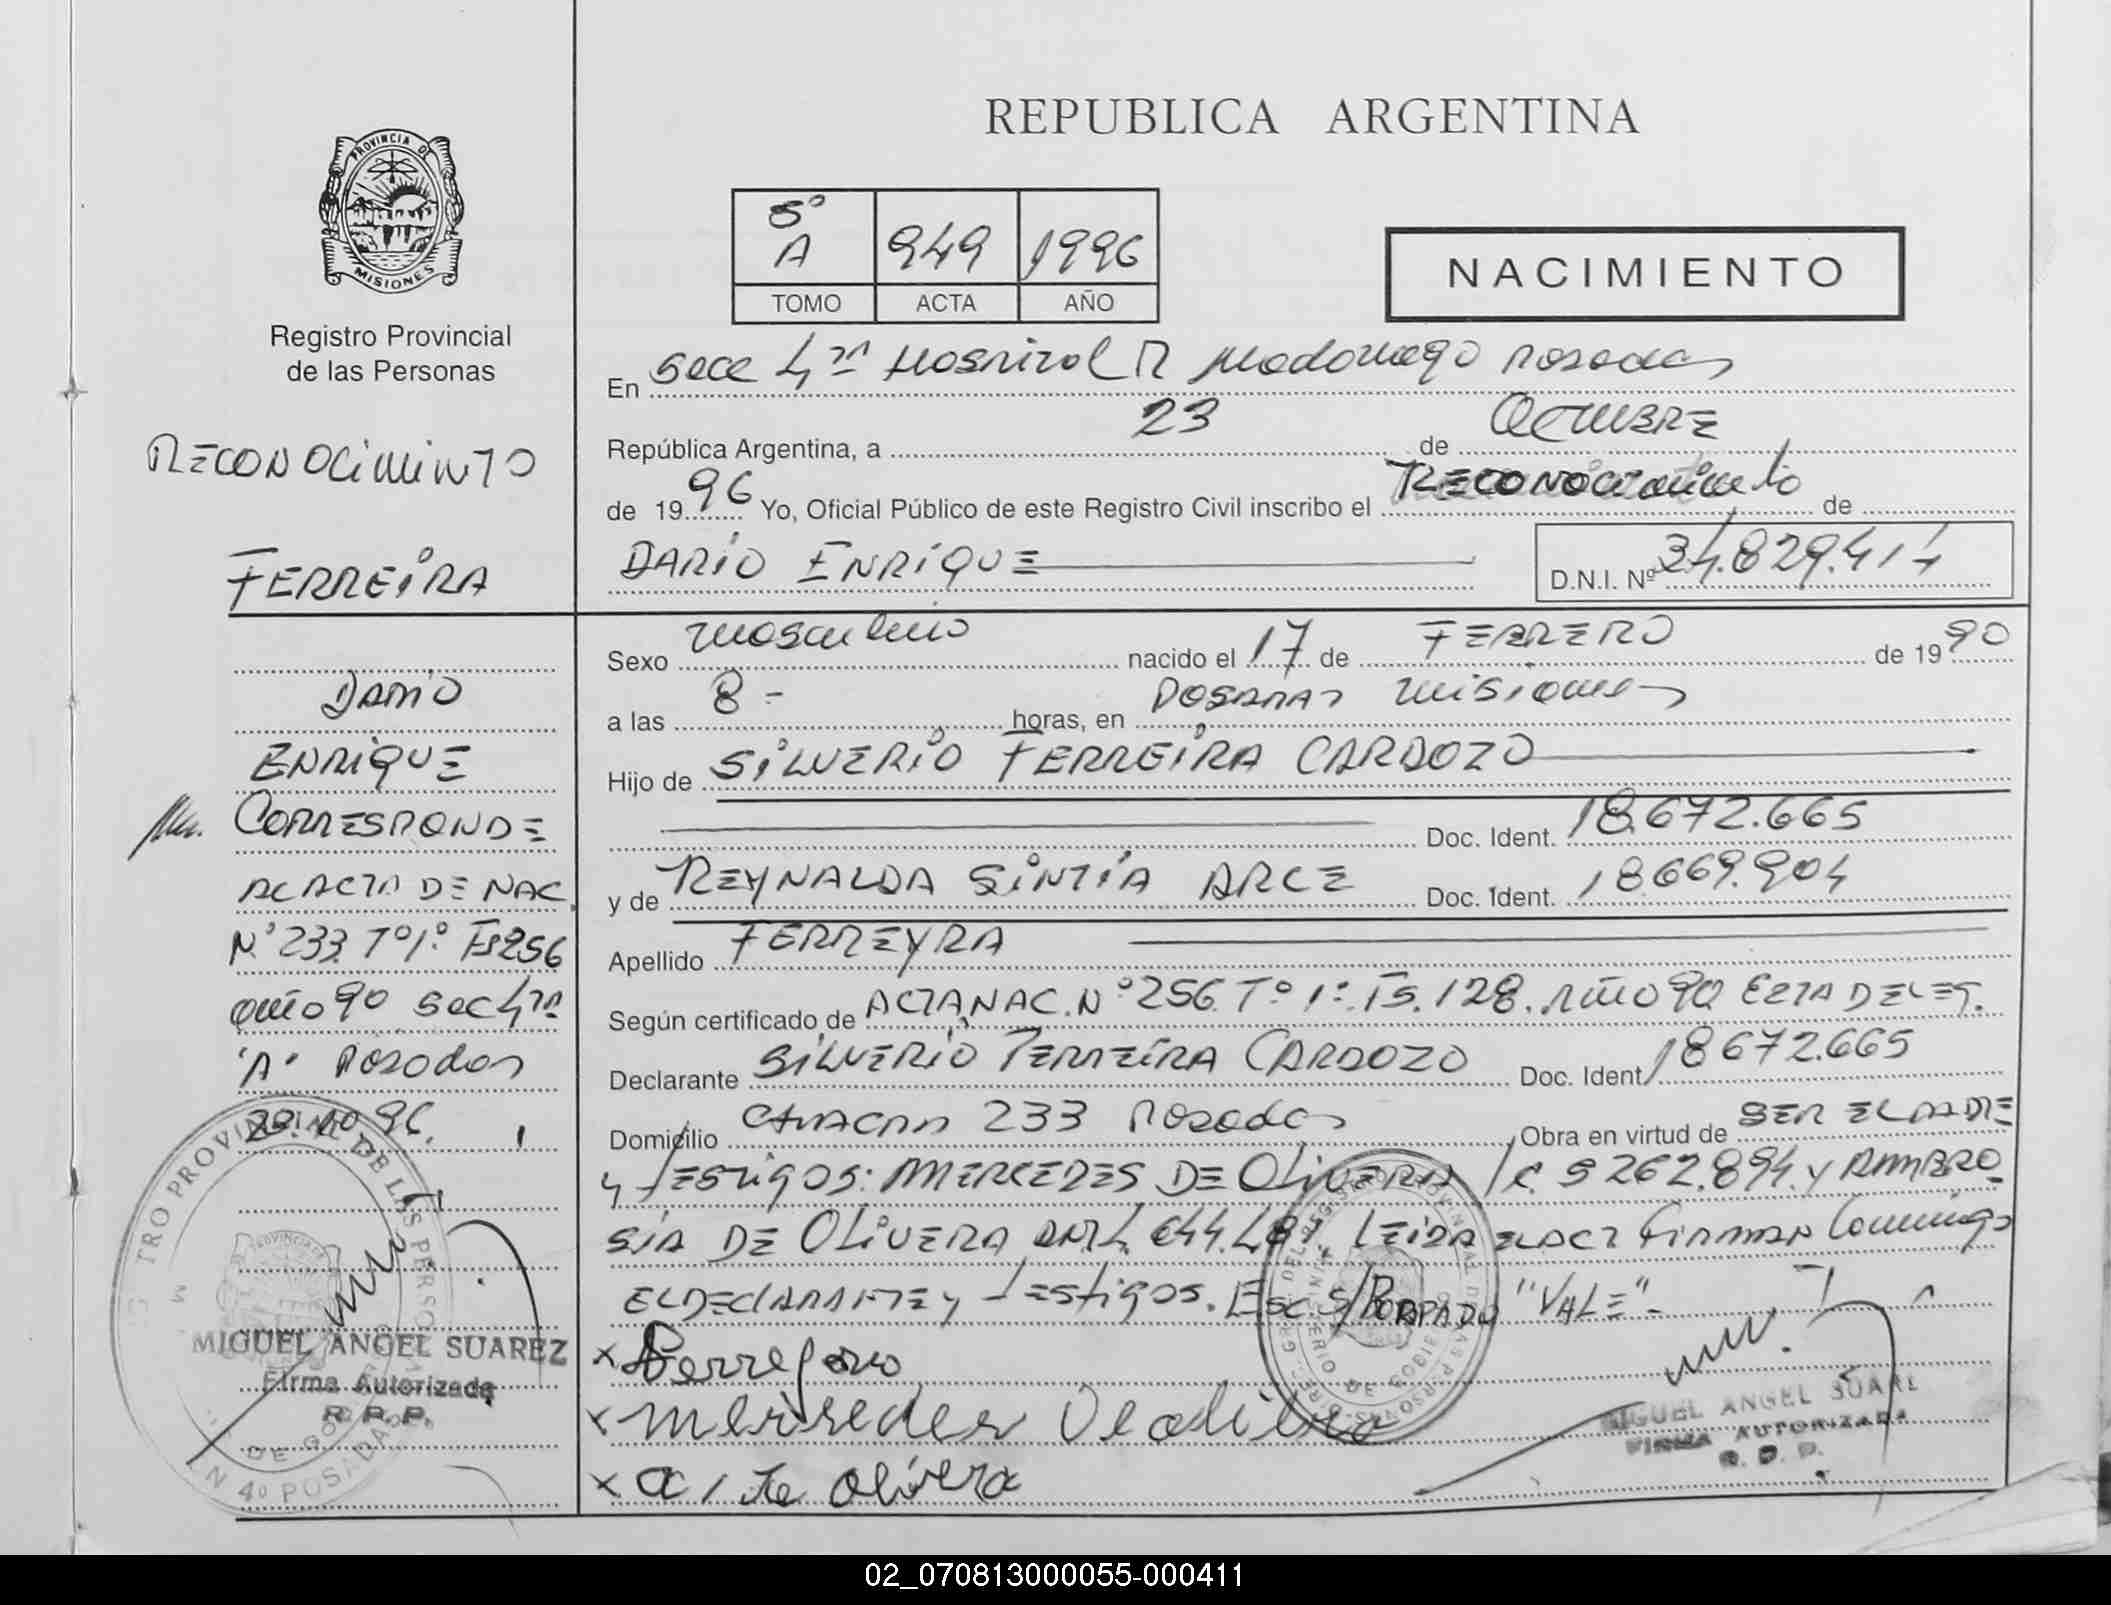 REPUBLICA ARGENTINA
PROVINCIA DE
MISIONES
Registro Provincial
de las Personas
5º
A
949
1996
TOMO
ACTA
AÑO
NACIMIENTO
RECONOCIMINTO
FERREIRA
DARIO
ENRIQUE
CORRESPONDE
AL ACTA DE NAC.
Nº 233. Tº 1º. Fs 256
año 90 Sec 4ta
"A" Posadas
MIGUEL ANGEL SUAREZ
Firma Autorizada
R. P. P.
En Secc 4ta Hospital R Madariaga Posadas
República Argentina, a 23 de OCTUBRE
de 1996 Yo, Oficial Público de este Registro Civil inscribo el RECONOCIMIENTO de
DARIO ENRIQUE
D.N.I. Nº 34.829.414
Sexo masculino nacido el 17 de FEBRERO de 1990
a las 8 - horas, en POSADAS misiones
Hijo de SILVERIO FERREIRA CARDOZO
Doc. Ident. 18.672.665
y de REYNALDA SINTIA ARCE Doc. Ident. 18.669.904
Apellido FERREYRA
Según certificado de ACTA NAC. Nº 256. Tº 1º. Fs. 128. Año 90 ESTA DELEG.
Declarante SILVERIO FERREIRA CARDOZO Doc. Ident. 18672.665
Domicilio CHACRA 233 Posadas Obra en virtud de SER EL PADRE
y TESTIGOS: MERCEDES DE OLIVERA 262.894. y AMBRO
SIA DE OLIVERA LEIDA EL ACTA FIRMAN Conmigo
EL DECLARANTE y TESTIGOS. Esc S/BORRADO "VALE"-
x
x Mersedes Deolivera
x Olivera
MIGUEL ANGEL SUAREZ
FIRMA AUTORIZADA
R. P. P.
02_070813000055-000411